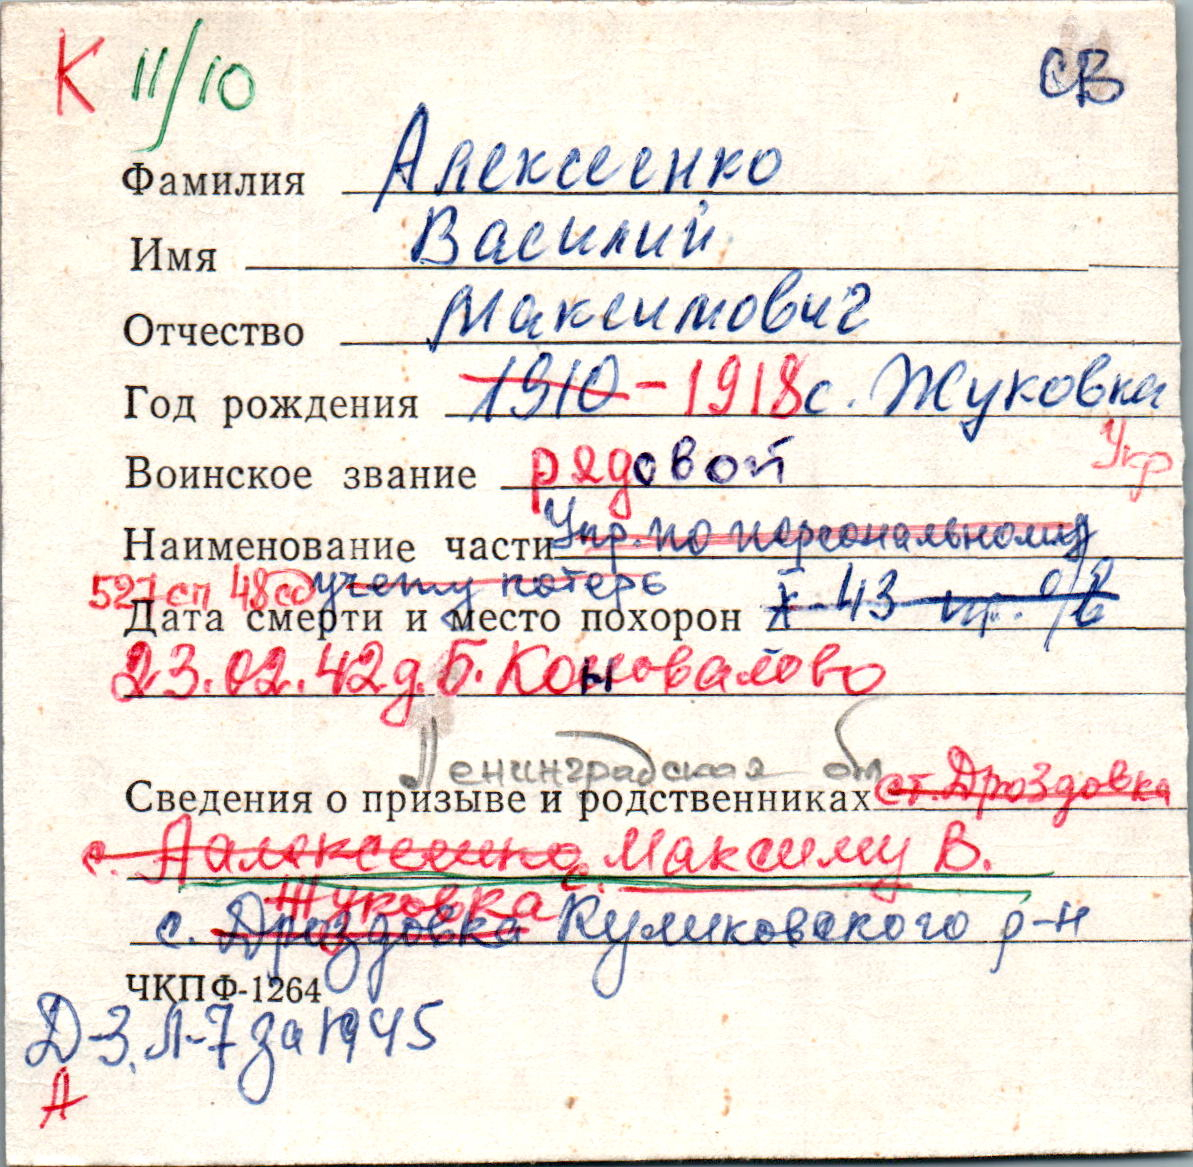 К 11/10 СВ
Фамилия Алексеенко
Имя Василий
Отчество Максимович
Год рождения 1910 - 1918 с. Жуковка
Укр
Воинское звание рядовой
Наименование части Упр. по персональному
527 сп 48 сд учету потерь
Дата смерти и место похорон X-43 пр. б/в
23.02.42 д. Б. Коновалово
Ленинградская обл
Сведения о призыве и родственниках ст. Дроздовка
с. Аалексеенко Максиму В.
с. Жуковка
с. Дроздовка Куликовского р-н
ЧКПФ-1264
Д-3, Л-7 за 1945
А